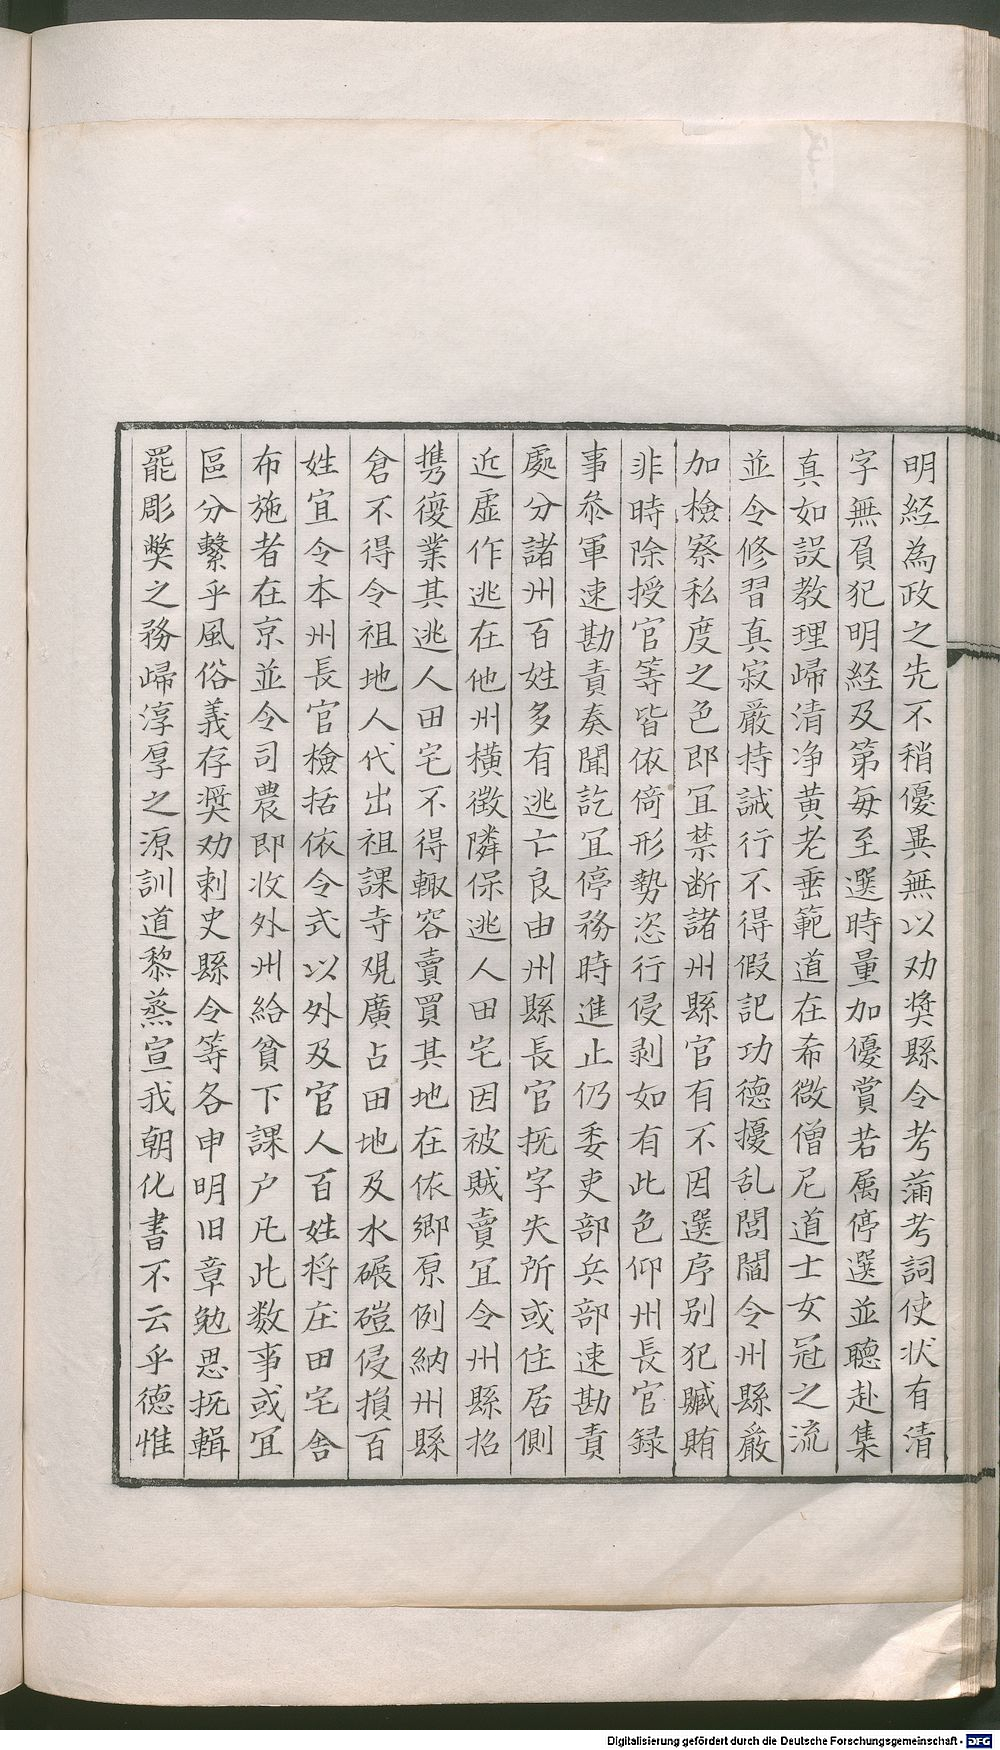 明經為政之先不稍優異無以劝奨縣令考蒲考詞使状有清
字無負犯明經及第每至選時量加優賞若属停選並聽赴集
真如設教理歸清净黄老垂範道在希微僧尼道士女冠之流
並令修習真寂嚴持誡行不得假記功德擾乱閭閻令州縣嚴
加檢察私度之色即冝禁断諸州縣官有不因選序别犯贓賄
非時除授官等皆依倚形勢恣行侵剥如有此色仰州長官録
事叅軍速勘責奏聞訖冝停務時進止仍委吏部兵部速勘責
處分諸州百姓多有逃亡良由州縣長官抚字失所或住居側
近虛作逃在他州横徴隣保逃人田宅因被賊賣冝令州縣招
携復業其逃人田宅不得輙容賣買其地在依鄉原例納州縣
倉不得令祖地人代出祖課寺观廣占田地及水碾磑侵損百
姓宜令本州長官檢括依令式以外及官人百姓将庄田宅舍
布施者在京並令司農即收外州給貧下課户凡此数事或冝
區分繫乎風俗義存奨劝刺史縣令等各申明旧章勉思抚輯
罷彫獘之務歸淳厚之源訓道黎蒸宣我朝化書不云乎德惟
Digitalisierung gefördert durch die Deutsche Forschungsgemeinschaft - DFG